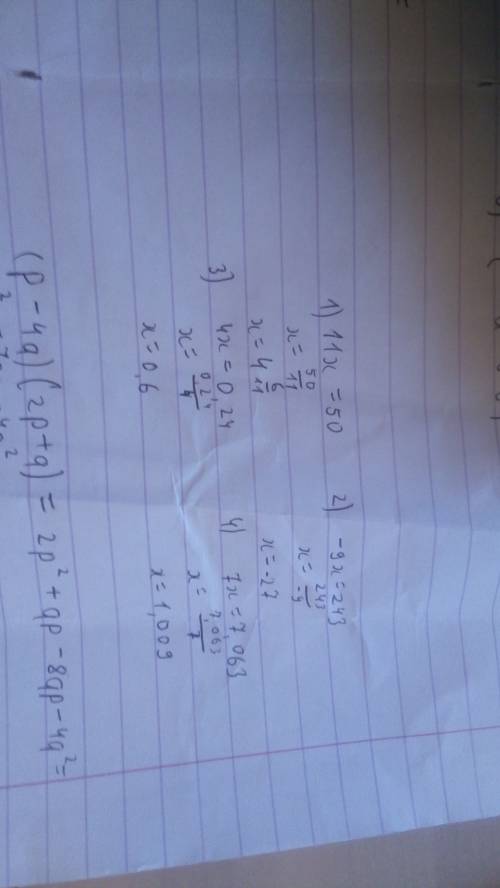 1) 11x = 50
x = 50/11
x = 4 6/11
2) -9x = 243
x = 243/-9
x = -27
3) 4x = 0,24
x = 0,24/4
x = 0,6
4) 7x = 7,063
x = 7,063/7
x = 1,009
(p - 4q)(2p + q) = 2p² + qp - 8qp - 4q² =